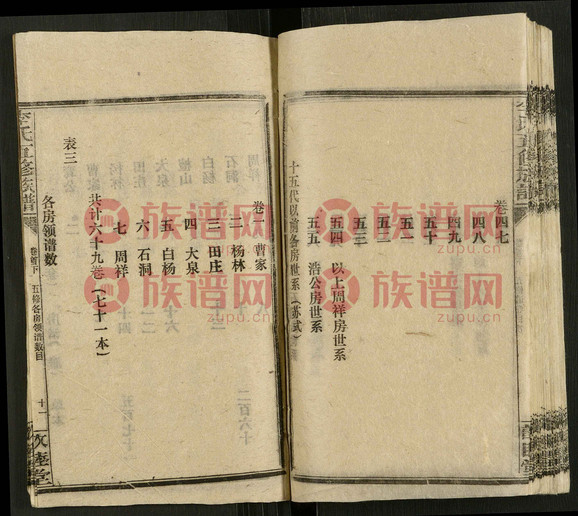 李氏五修族譜
卷四七
四八
四九
五十
五一
五二
五三
五四 以上周祥房世系
五五 浩公房世系
十五代以前各房世系(苏式)
卷一 曹家
二 杨林
三 田庄
四 大泉
五 白杨
六 石洞
七 周祥
共计六十九卷(七十一本)
表三
各房领谱数
李氏五修族譜
卷首下
五修各房领谱数目
十一
敦睦堂
族谱网
zupu.cn